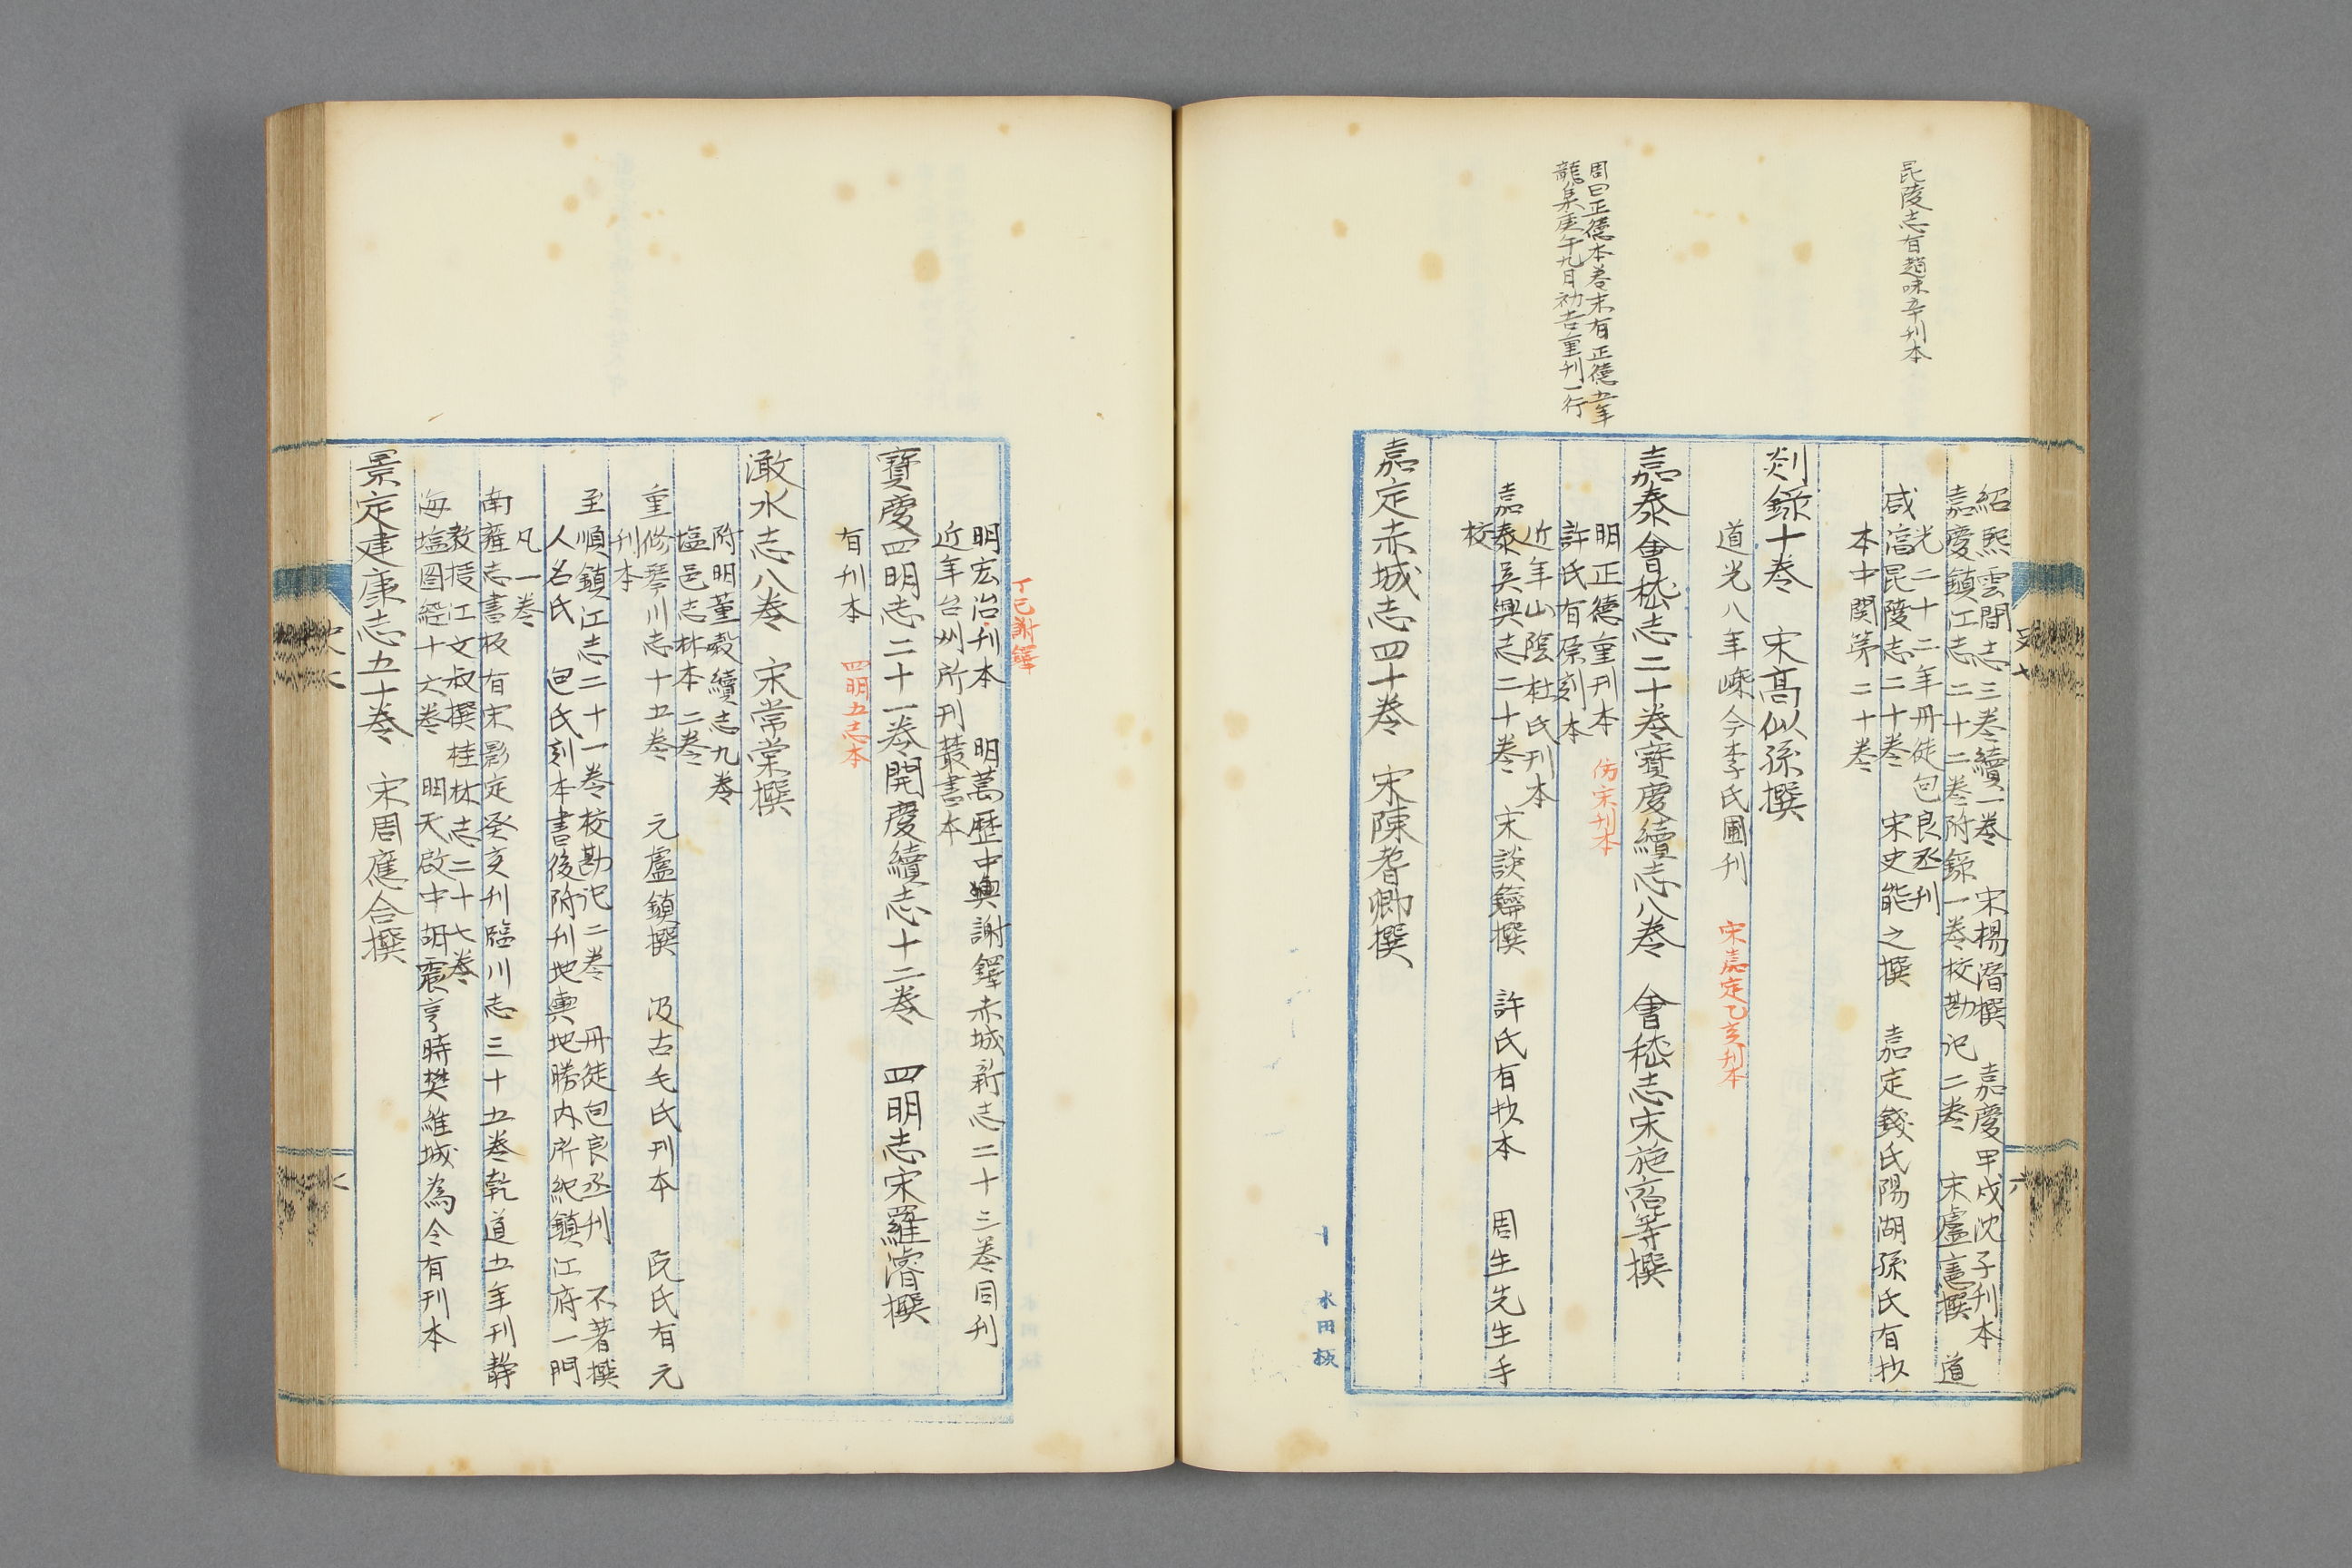 毘陵志有趙味辛刊本
周曰正德本卷末有正德五年
龍集庚午九日初吉重刊一行
紹熙雲間志三卷續一卷　宋楊潛撰　嘉慶甲戌沈子刊本
嘉慶鎮江志二十二卷附録一卷校勘记二卷　宋盧憲撰　道
光二十二年丹徒包良丞刊
咸淳昆陵志二十卷　宋史能之撰　嘉定錢氏陽湖孫氏有抄
本中闕第二十卷
剡録十卷　宋高似孫撰
道光八年嵊令李氏圃刊　宋嘉定乙亥刊本
嘉泰會嵇志二十卷寶慶續志八卷　會嵇志宋施宿等撰
明正德重刊本　仿宋刊本
許氏有原刻本
近年山陰杜氏刊本
嘉泰吳興志二十卷　宋談鑰撰　許氏有抄本　周生先生手
校
嘉定赤城志四十卷　宋陳耆卿撰
十
水田板
史七
六
丁巳謝鐸
明宏治刊本　明萬歷中興謝鐸赤城新志二十三卷同刊
近年台州所刊叢書本
寶慶四明志二十一卷開慶續志十二卷　四明志宋羅濬撰
有刊本　四明五志本
澉水志八卷　宋常棠撰
附明董穀續志九卷
塩邑志林本二卷
重修琴川志十五卷　元盧鎮撰　汲古毛氏刊本　阮氏有元
刊本
至順鎮江志二十一卷校勘记二卷　丹徒包良丞刊　不著撰
人名氏　包氏刻本書後附刊地輿地勝内所紀鎮江府一門
凡一卷
南雍志書板有宋影定癸亥刊臨川志三十五卷乾道五年刊靜
教授江文叔撰桂林志二十七卷
海塩圖經十六卷　明天啟中胡震亨時樊維城為令有刊本
景定建康志五十卷　宋周應合撰